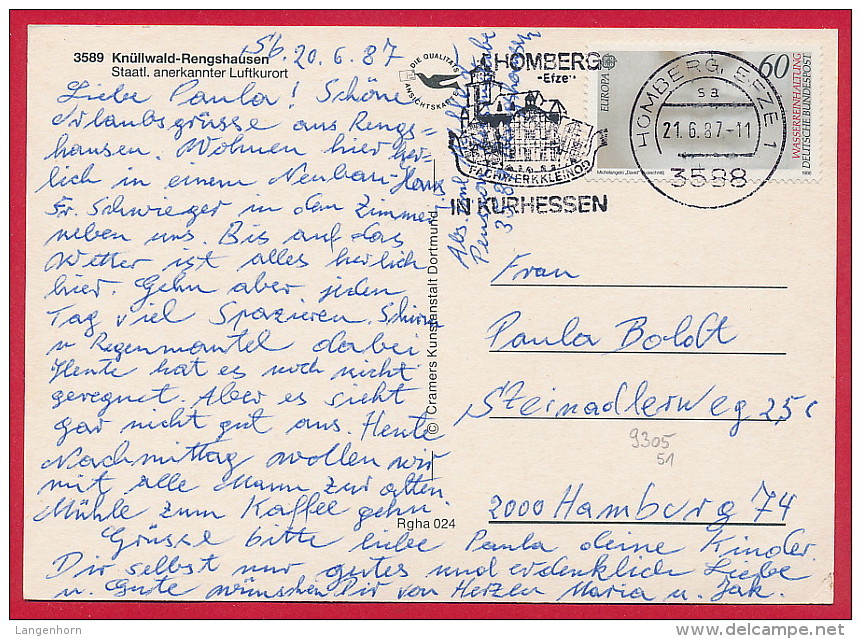 3589 Knüllwald-Rengshausen
Staatl. anerkannter Luftkurort
20.6.87
Liebe Paula! Schöne
Urlaubsgrüsse aus Rengs=
hausen. Wohnen hier herr-
lich in einem Neubau-Haus
Fr. Schwieger in dem Zimmer
neben uns. Bis auf das
Wetter ist alles herlich
hier. Gehn aber jeden
Tag viel Spazieren. Schirm
u Regenmantel dabei
Heute hat es noch nicht
geregnet. Aber es sieht
gar nicht gut aus. Heute
Nachmittag wollen wir
mit alle Mann zur alten
Mühle zum Kaffee gehn.
Grüsse bitte liebe Paula deine Kinder.
Dir selbst nur gutes und erdenklich Liebe
u. Gute wünschen Dir von Herzen Maria u. Jak.
© Cramers Kunstanstalt Dortmund
Rgha 024
DIE QUALITÄTS
ANSICHTSKARTE
HOMBERG
-Efze-
FACHWERKKLEINOD
IN KURHESSEN
EUROPA
60
WASSERREINHALTUNG
DEUTSCHE BUNDESPOST
1986
HOMBERG, EFZE 1
sa
21.6.87.-11
3588
Frau
Paula Boldt
Steinadlerweg 25c
9305
51
2000 Hamburg 74
Langenhorn
delcampe.net